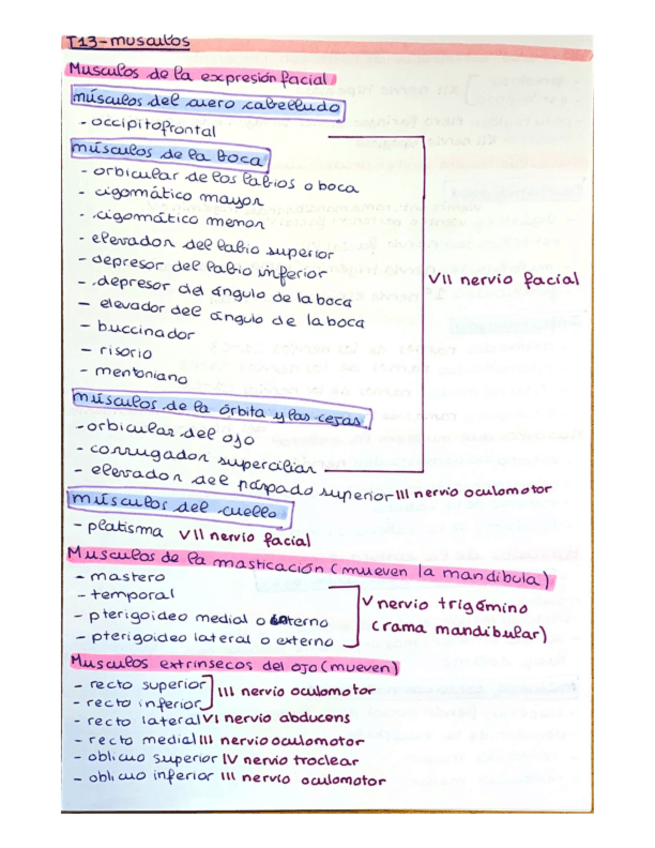 T13-musculos
Musculos de la expresión facial
músculos del cuero cabelludo
- occipitofrontal
músculos de la boca
- orbicular de los labios o boca
- cigomático mayor
- cigomático menor
- elevador del labio superior
- depresor del labio inferior
- depresor del ángulo de la boca
- elevador del ángulo de la boca
- buccinador
- risorio
- mentoniano
VII nervio facial
músculos de la órbita y las cejas
- orbicular del ojo
- corrugador superciliar
- elevador del párpado superior III nervio oculomotor
músculos del cuello
- platisma VII nervio facial
Musculos de la masticación (mueven la mandibula)
- mastero
- temporal
- pterigoideo medial o interno
- pterigoideo lateral o externo
V nervio trigémino
(rama mandibular)
Musculos extrinsecos del ojo (mueven)
- recto superior
- recto inferior
III nervio oculomotor
- recto lateral VI nervio abducens
- recto medial III nervio oculomotor
- oblicuo superior IV nervio troclear
- oblicuo inferior III nervio oculomotor